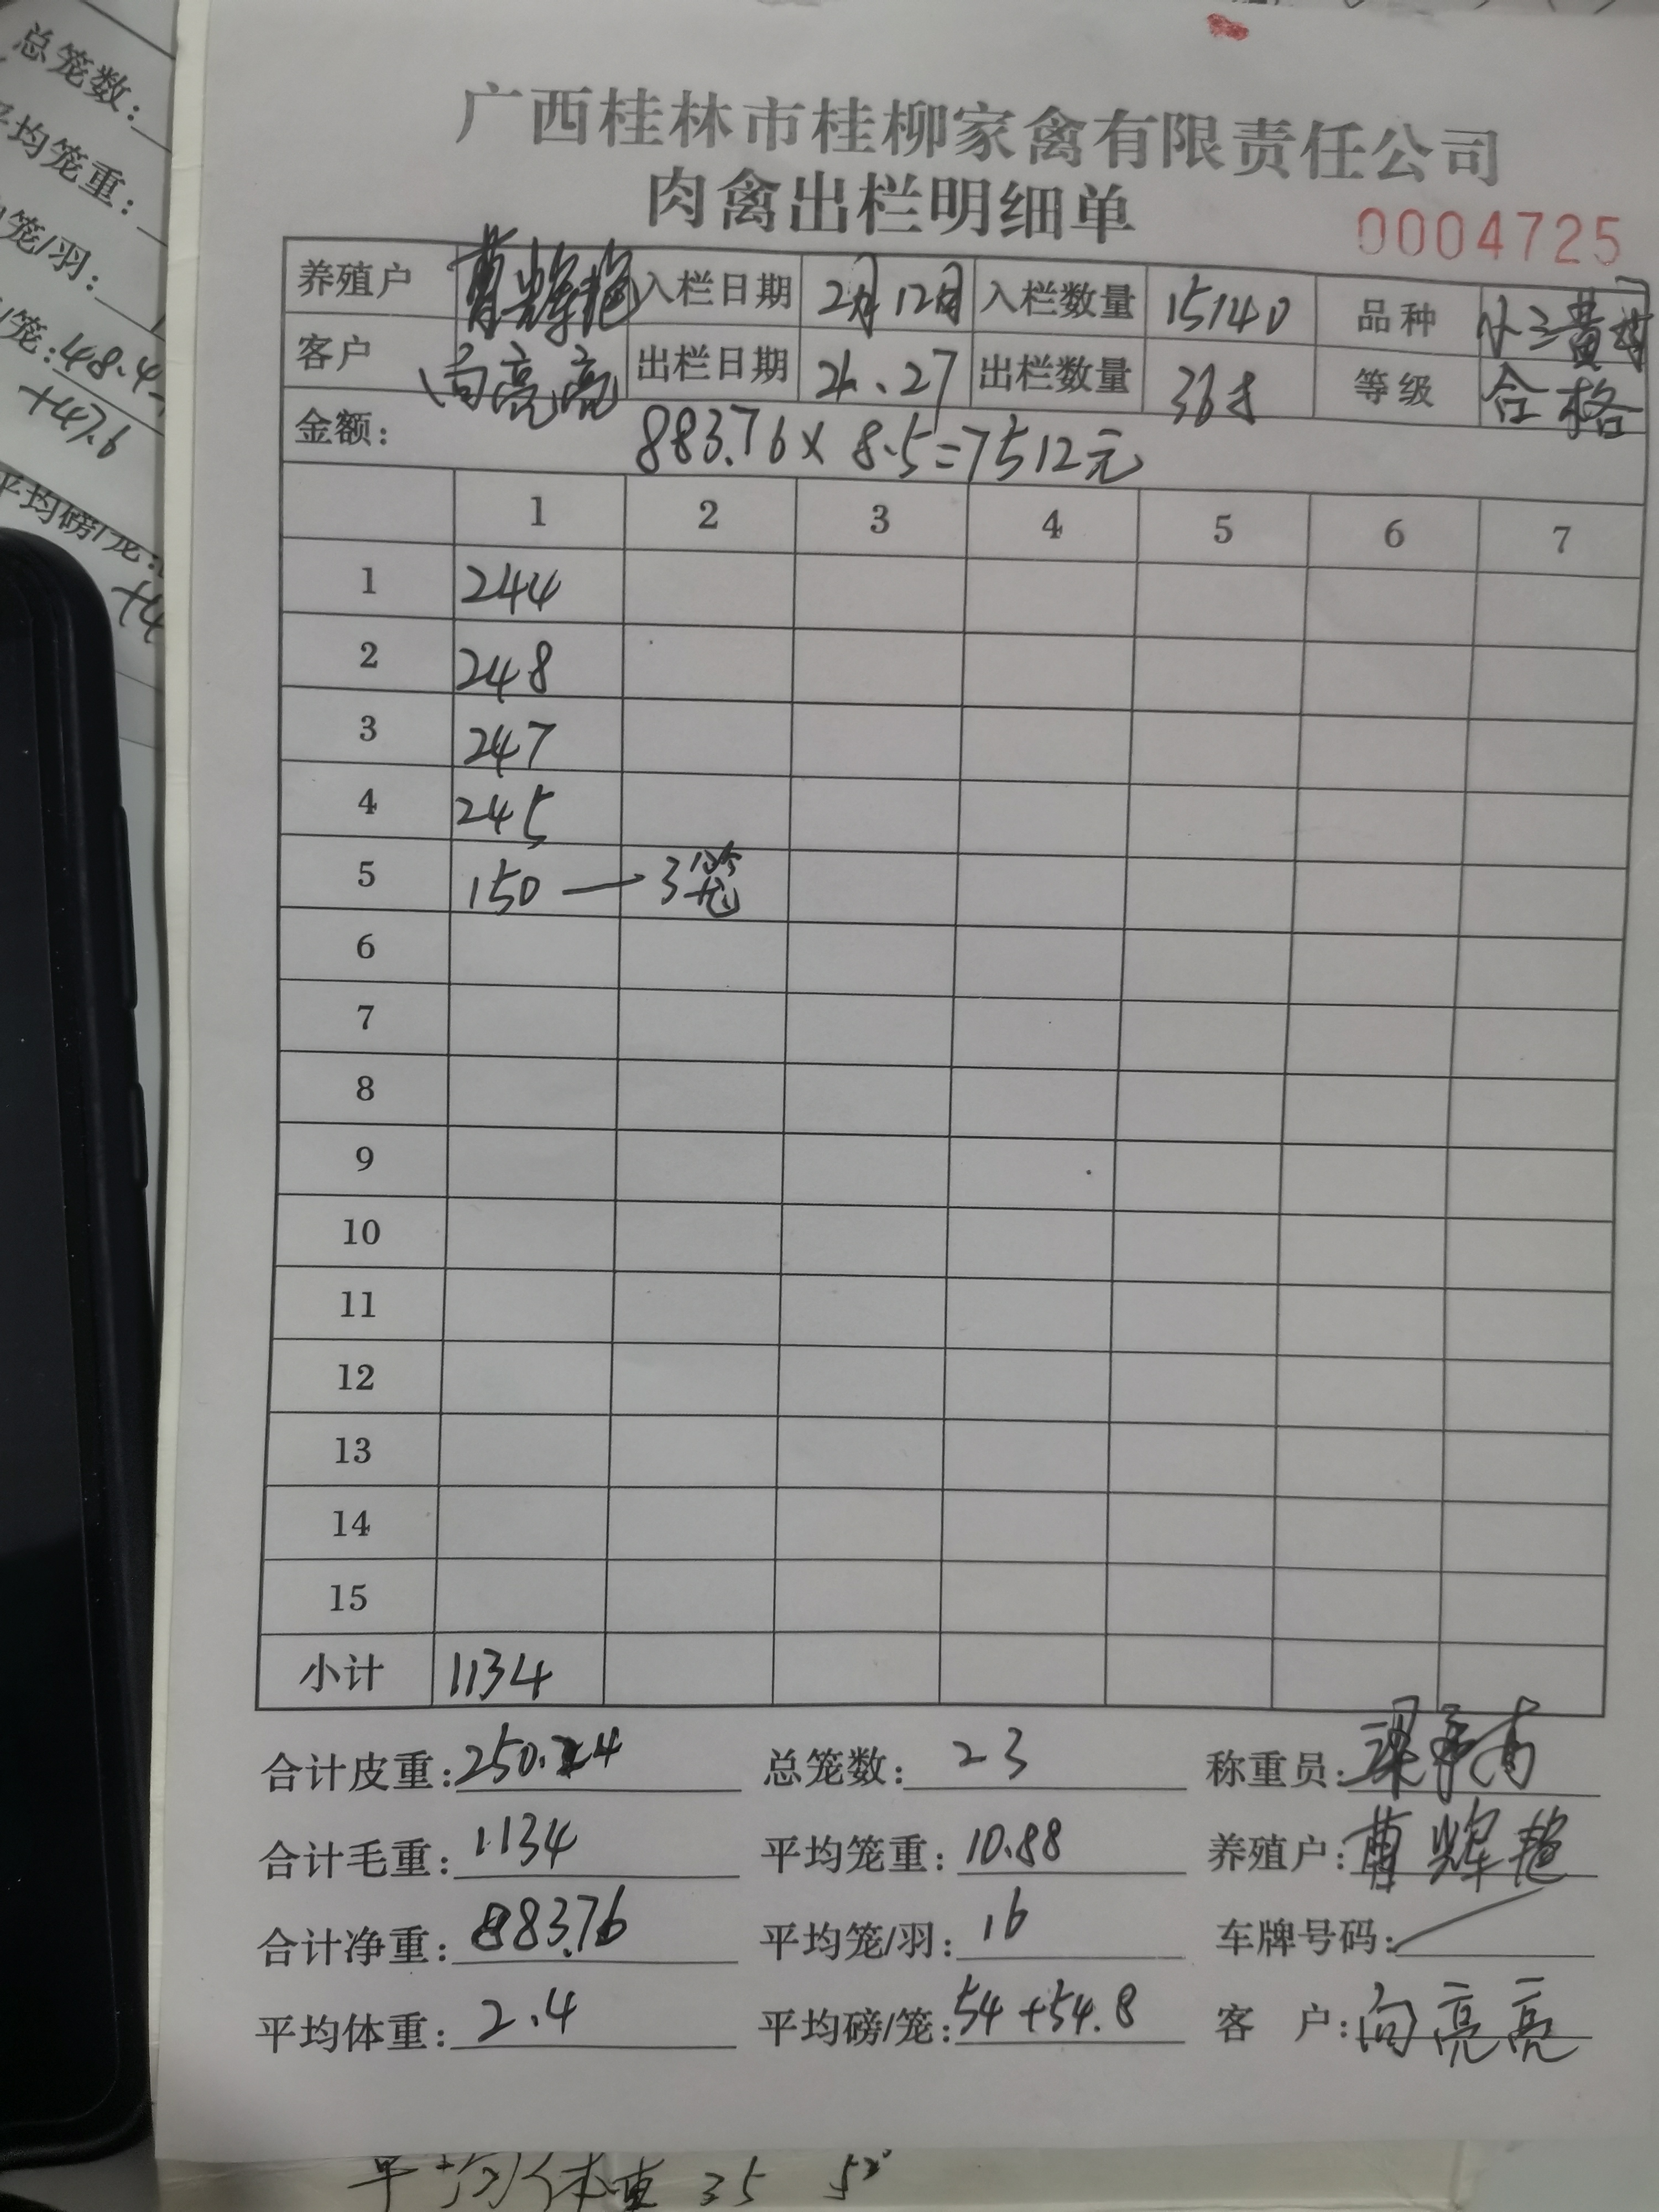 总笼数:
平均笼重:
笼/羽:
笼:48.4
+47.6
平均磅/笼:
+4
广西桂林市桂柳家禽有限责任公司
肉禽出栏明细单
0004725
养殖户 曹辉艳 入栏日期 2月12日 入栏数量 15140 品种 小三黄
客户 向亮亮 出栏日期 24.27 出栏数量 368 等级 合格
金额: 883.76×8.5=7512元
1 2 3 4 5 6 7
1 244
2 248
3 247
4 245
5 150 — 3笼
6
7
8
9
10
11
12
13
14
15
小计 1134
合计皮重:250.24 总笼数:23 称重员:
合计毛重:1134 平均笼重:10.88 养殖户:曹辉艳
合计净重:883.76 平均笼/羽:16 车牌号码:
平均体重:2.4 平均磅/笼:54+54.8 客 户:向亮亮
平均体重 35